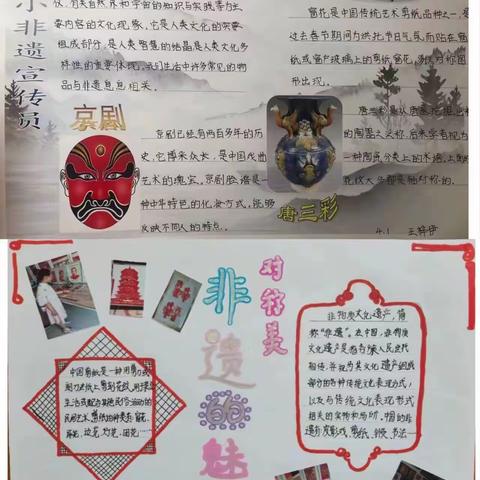 示非遗宣传员
仪,有关自然界和宇宙的知识与实践等为主
要内容的文化现象,它是人类文化的突要
组成部分,是人类智慧的结晶是人类文化多
样性的重要体现,我们生活中许多常见的物
品与非遗息息相关。
京剧
京剧已经有两百多年的历
史,它博采众长,是中国戏曲
艺术的瑰宝,京剧脸谱是一
种中华特色的化妆方式,能够
反映不同人的特点。
窗花是中国传统艺术剪纸品种之一,是
过去春节期间为烘托节日气氛而贴在窗
纸或窗户玻璃上的剪纸窗花,多以对称图
形出现。
唐三彩
4.1 王梓伊
非遗的魅
对称美
中国剪纸是一种用剪刀或
刻刀在纸上剪刻花纹,用于装点
生活或配合其他民俗活动的
民间艺术,剪纸的种类有窗花、
非物质文化遗产,简
称“非遗”。在中国,非物质
文化遗产是指各族人民世代
相传,并视为其文化遗产组成
部分的各种传统文化表现形式,
以及与传统文化表现形式
相关的实物和场所,中国的非
遗有皮影戏、剪纸、刺绣、书法……